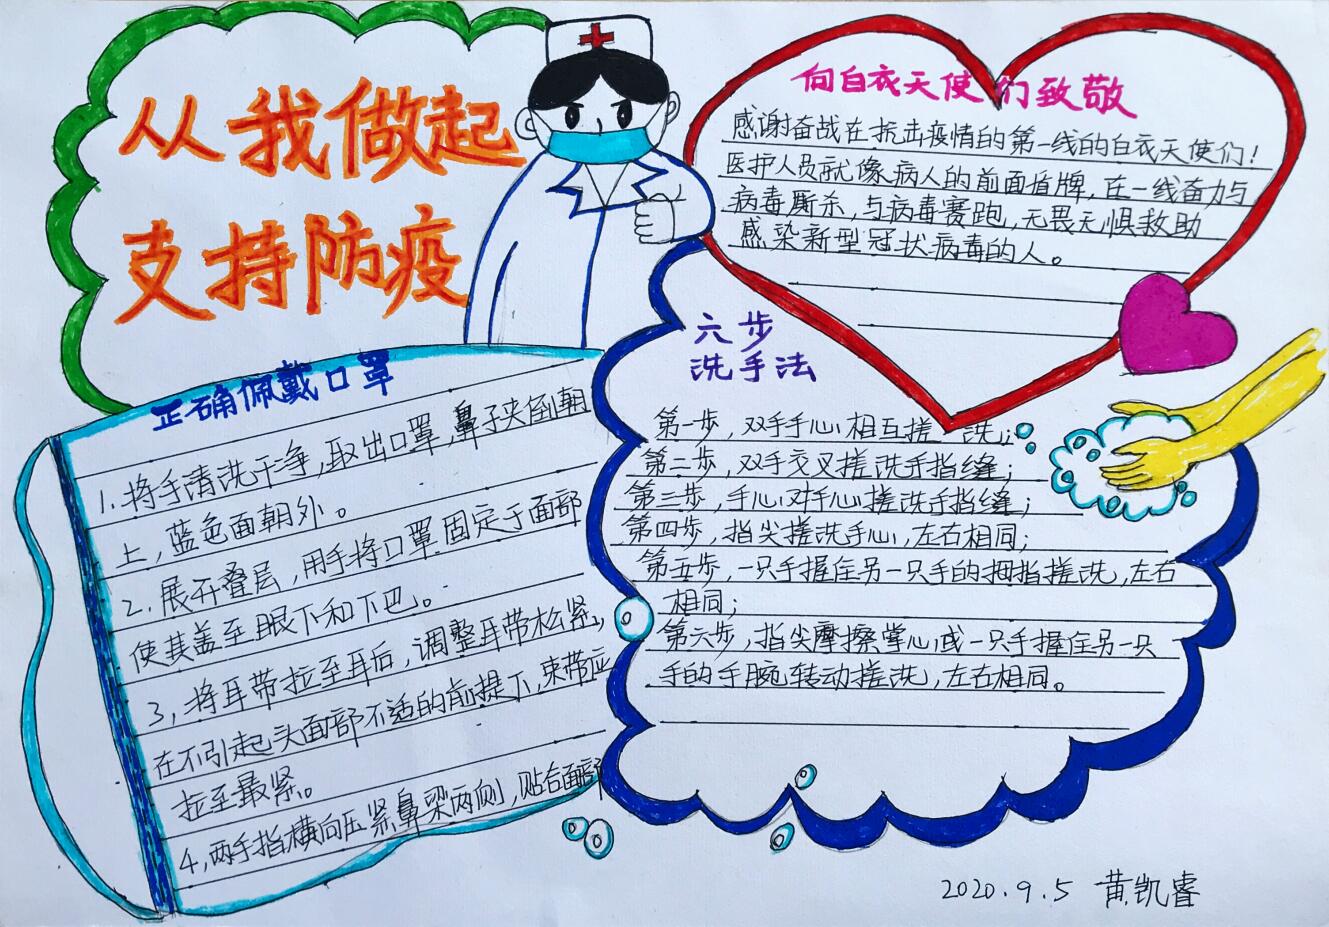 从我做起
支持防疫
向白衣天使们致敬
感谢奋战在抗击疫情的第一线的白衣天使们！
医护人员就像病人的前面盾牌，在一线奋力与
病毒厮杀，与病毒赛跑，无畏无惧救助
感染新型冠状病毒的人。
六步
洗手法
第一步，双手手心相互搓洗；
第二步，双手交叉搓洗手指缝；
第三步，手心对手心搓洗手指缝；
第四步，指尖搓洗手心，左右相同；
第五步，一只手握住另一只手的拇指搓洗，左右
相同；
第六步，指尖摩擦掌心或一只手握住另一只
手的手腕转动搓洗，左右相同。
正确佩戴口罩
1.将手清洗干净，取出口罩，鼻子夹倒朝
上，蓝色面朝外。
2.展开叠层，用手将口罩固定于面部
使其盖至眼下和下巴。
3，将耳带拉至耳后，调整耳带松紧，
在不引起头面部不适的前提下，束带应
拉至最紧。
4，两手指横向压紧鼻梁两侧，贴合面部
2020.9.5 黄凯睿